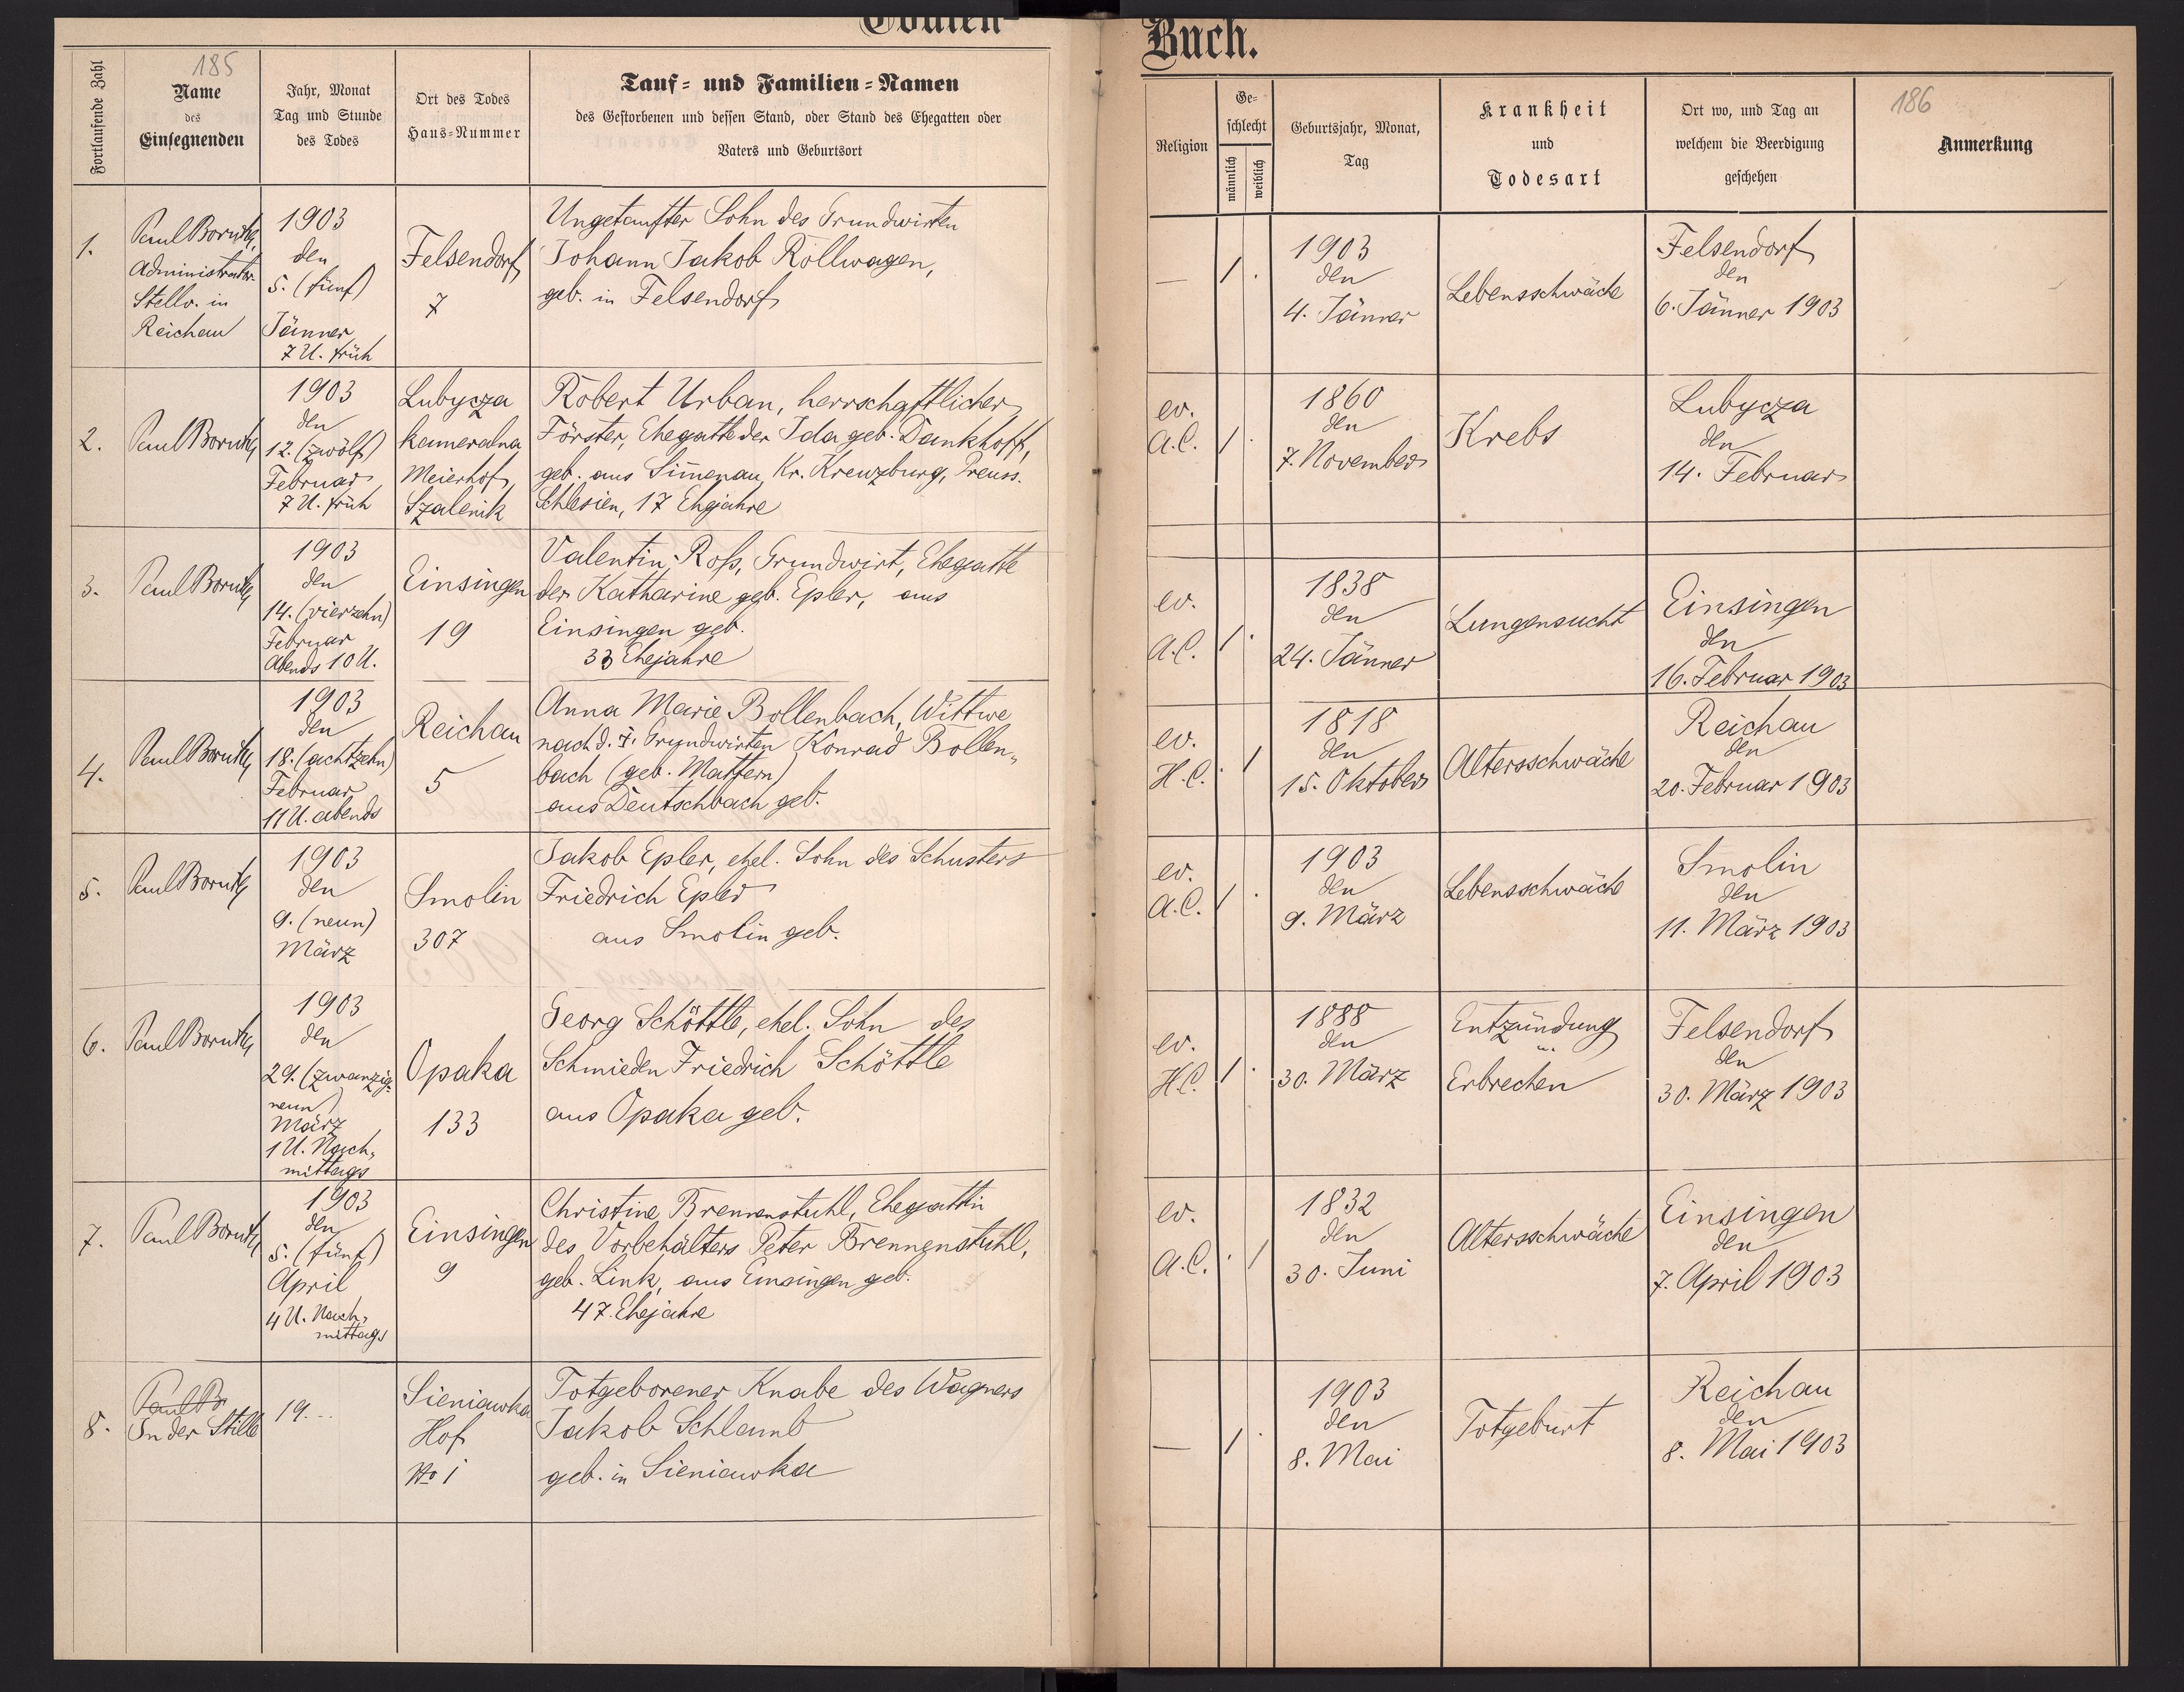 Todten-Buch.
185
Fortlaufende Zahl
Name
des
Einsegnenden
Jahr, Monat
Tag und Stunde
des Todes
Ort des Todes
Haus-Nummer
Tauf- und Familien-Namen
des Gestorbenen und dessen Stand, oder Stand des Ehegatten oder
Vaters und Geburtsort
Religion
Ge-
schlecht
männlich
weiblich
Geburtsjahr, Monat,
Tag
Krankheit
und
Todesart
Ort wo, und Tag an
welchem die Beerdigung
geschehen
186
Anmerkung
1.
Paul Boruth,
Administrator-
Stellv. in
Reichau
1903
den
5. (fünf)
Jänner
7 U. früh
Felsendorf
7
Ungetaufter Sohn des Grundwirten
Johann Jakob Rollwagen,
geb. in Felsendorf
—
1 .
1903
den
4. Jänner
Lebensschwäche
Felsendorf
den
6. Jänner 1903
2.
Paul Boruth
1903
den
12. (zwölf)
Februar
7 U. früh
Lubycza
kameralna
Meierhof
Szalenik
Robert Urban, herrschaftlicher
Förster, Ehegatte der Ida geb. Dankhoff,
geb. aus Simmenau, Kr. Kreuzburg, Preuss.
Schlesien, 17 Ehejahre
ev.
A.C.
1 .
1860
den
7. November
Krebs
Lubycza
den
14. Februar
3.
Paul Boruth
1903
den
14. (vierzehn)
Februar
Abends 10 U.
Einsingen
19
Valentin Roß, Grundwirt, Ehegatte
der Katharine geb. Epler, aus
Einsingen geb.
33 Ehejahre
ev.
A.C.
1 .
1838
den
24. Jänner
Lungensucht
Einsingen
den
16. Februar 1903
4.
Paul Boruth
1903
den
18. (achtzehn)
Februar
11 U. abends
Reichau
5
Anna Marie Bollenbach, Wittwe
nach d. †. Grundwirten Konrad Bollen-
bach (geb. Mattern)
aus Deutschbach geb.
ev.
H.C.
. 1
1818
den
15. Oktober
Altersschwäche
Reichau
den
20. Februar 1903
5.
Paul Boruth
1903
den
9. (neun)
März
Smolin
307
Jakob Epler, ehel. Sohn des Schusters
Friedrich Epler
aus Smolin geb.
ev.
A.C.
1 .
1903
den
9. März
Lebensschwäche
Smolin
den
11. März 1903
6.
Paul Boruth
1903
den
29. (zwanzig-
neun)
März
1 U. Nach-
mittags
Opaka
133
Georg Schöttle, ehel. Sohn des
Schmieden Friedrich Schöttle
aus Opaka geb.
ev.
H.C.
1 .
1888
den
30. März
Entzündung
u.
Erbrechen
Felsendorf
den
30. März 1903
7.
Paul Boruth
1903
den
5. (fünf)
April
4 U. Nach-
mittags
Einsingen
9
Christine Brennenstuhl, Ehegattin
des Vorbehälters Peter Brennenstuhl,
geb. Link, aus Einsingen geb.
47. Ehejahre
ev.
A.C.
. 1
1832
den
30. Juni
Altersschwäche
Einsingen
den
7. April 1903
8.
Paul Bo
In der Stille
19...
Sieniawka
Hof
No 1
Totgeborener Knabe des Wagners
Jakob Schlamb
geb. in Sieniawka
—
1 .
1903
den
8. Mai
Totgeburt
Reichau
den
8. Mai 1903